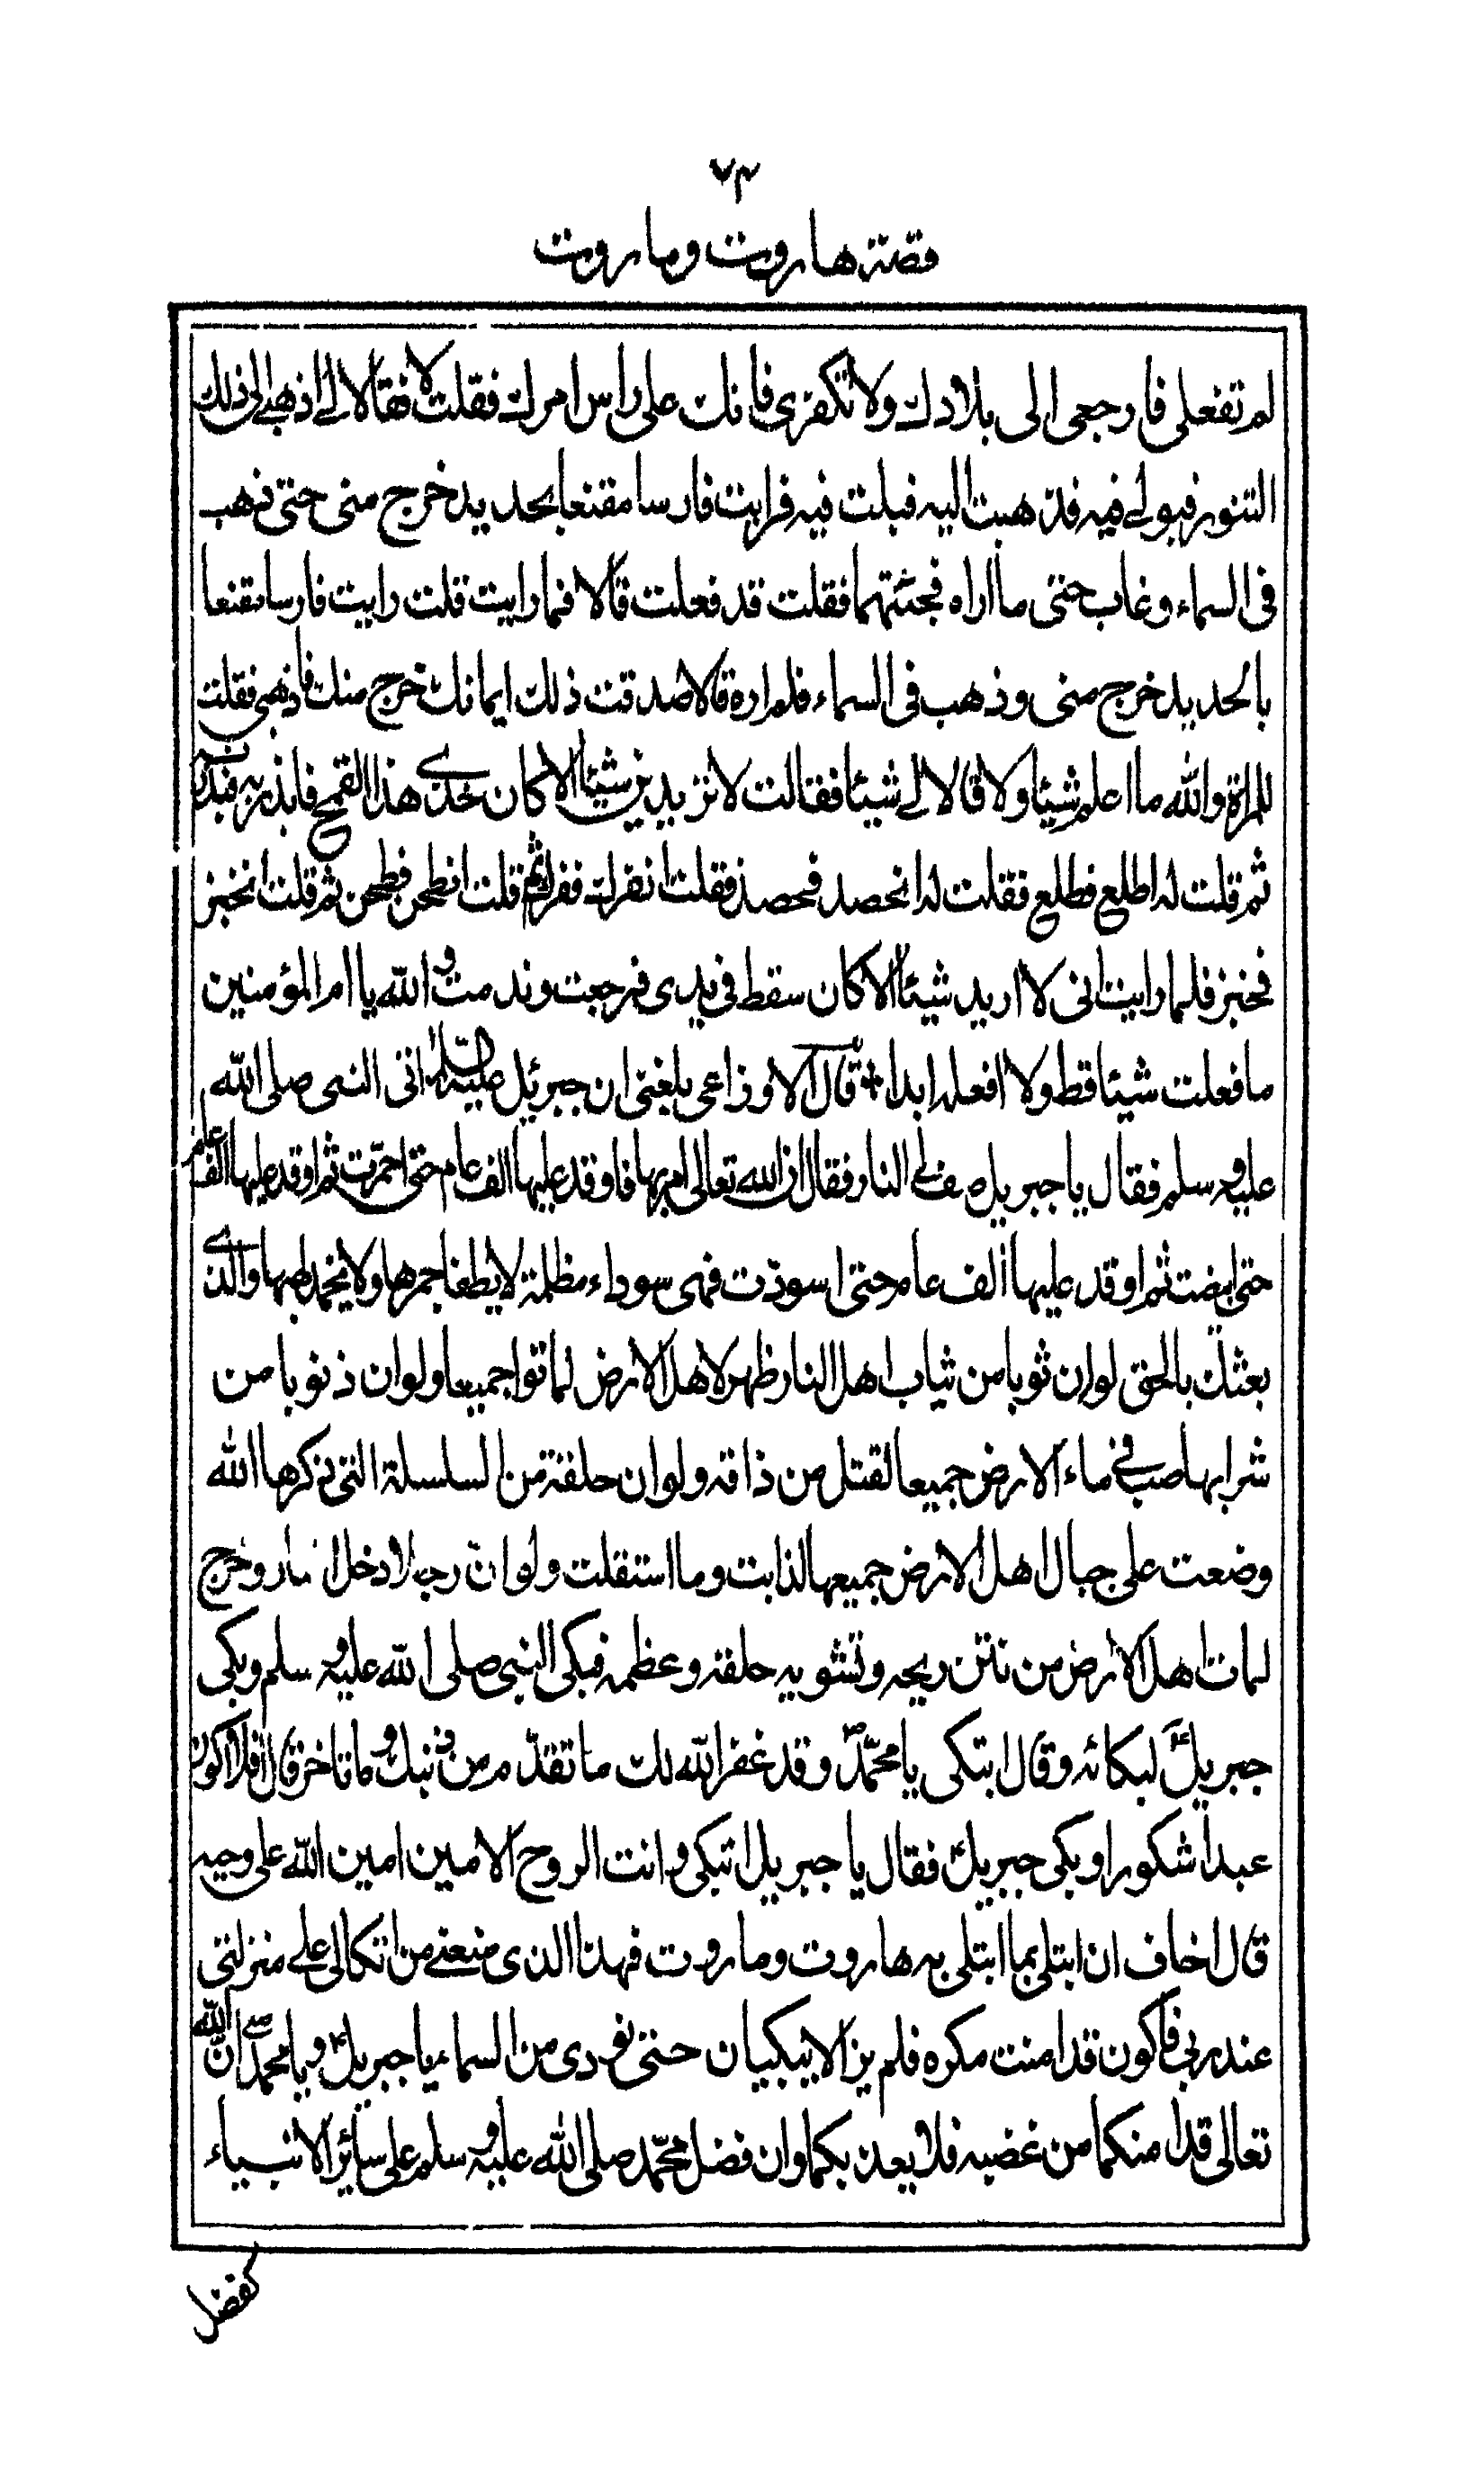 ٧٣
قصة هاروت وماروت
لم تفعلى فارجعى الى بلادك ولا تكفرى فانك على راس امرك فقلت لا فقالا لے اذهبے الى ذلك
التنور فبولے فيه فذهبت اليه فبلت فيه فرايت فارسا مقنعا بحديد خرج منى حتى ذهب
فى السماء وغاب حتى ما اراه فجئتهما فقلت قد فعلت قالا فما رايت قلت رايت فارسا مقنعا
بالحديد خرج منى وذهب فى السماء فلم اره قالا صدقت ذلك ايمانك خرج منك فاذهبى فقلت
للمراة والله ما اعلم شيئا ولا قالا لے شيئا فقالت لا تزيدين شيئا الا كان خذى هذا القمح فابذريه فبذرته
ثم قلت له اطلع فطلع فقلت له انحصد فحصد فقلت انفرك ففرك ثم قلت انطحن فطحن ثم قلت انخبز
فخبز فلما رايت انى لا اريد شيئا الا كان سقط فى يدى فرجعت وندمت والله يا ام المؤمنين
ما فعلت شيئا قط ولا افعله ابدا * قال الاوزاعى بلغنى ان جبرئيل عليه السلام اتى النبى صلى الله
عليه وسلم فقال يا جبريل صف لے النار فقال ان الله تعالى امر بها فاوقد عليها الف عام حتى احمرّت ثم اوقد عليها الف عام
حتى ابيضت ثم اوقد عليها الف عام حتى اسودّت فهى سوداء مظلمة لا يطفا جمرها ولا يخمد لهبها والذى
بعثك بالحق لو ان ثوبا من ثياب اهل النار ظهر لاهل الارض لماتوا جميعا ولو ان ذنوبا من
شرابها صب فے ماء الارض جميعا لقتل من ذاقه ولو ان حلقة من السلسلة التى ذكرها الله
وضعت على جبال اهل الارض جميعها لذابت وما استقلت ولو ان رجلا دخل النار وخرج
لمات اهل الارض من نتن ريحه وتشويه خلقه وعظمه فبكى النبى صلى الله عليه وسلم وبكى
جبريلؑ لبكائه وقال اتبكى يا محمّدؐ وقد غفر الله لك ما تقدّم من ذنبك وما تاخر قال افلا اكون
عبدا شكورا وبكى جبريلؑ فقال يا جبريل اتبكى وانت الروح الامين امين الله على وحيه
قال اخاف ان ابتلى بما ابتلى به هاروت وماروت فهذا الذى منعنے من اتكالى علے منزلتى
عند ربى فاكون قد امنت مكره فلم يزالا يبكيان حتى نودى من السماء يا جبريلؑ ويا محمدؐ ان الله
تعالى قد امنكما من غضبه فلا يعذبكما وان فضل محمّد صلى الله عليه وسلم على سائر الانبياء
كفضل